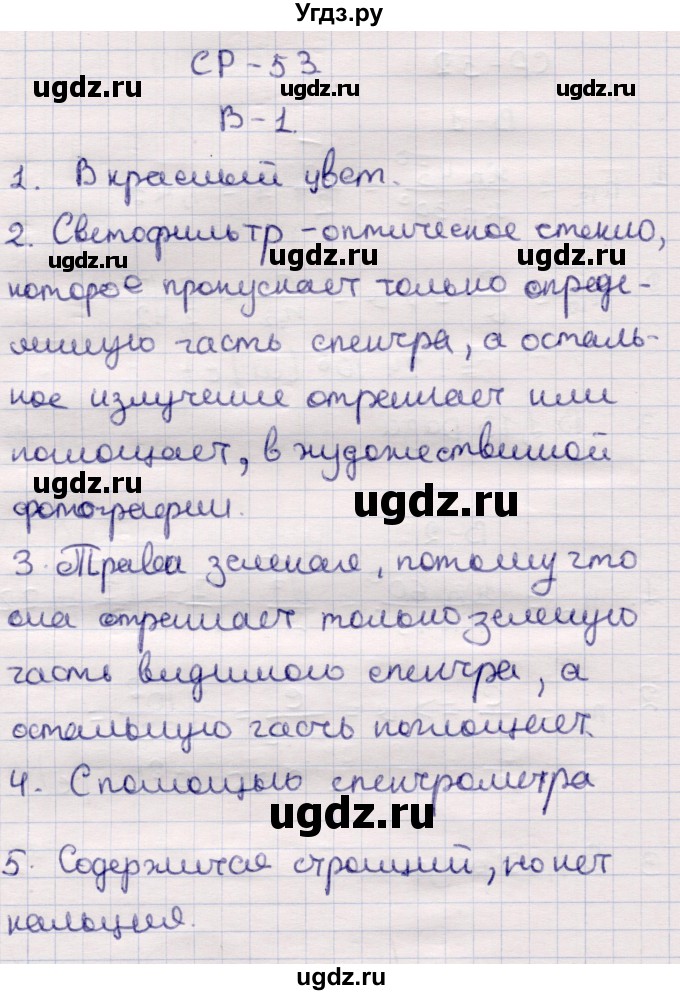 Угдз.ру
СР-53
ugdz.ru ugdz.ru ugdz.ru
В-1.
1. В красный цвет.
2. Светофильтр - оптическое стекло,
ugdz.ru ugdz.ru
которое пропускает только опреде-
лённую часть спектра, а осталь-
ное излучение отражает или
поглощает, в художественной
ugdz.ru ugdz.ru ugdz.ru
фотографии.
3. Трава зеленая, потому что
она отражает только зеленую
часть видимого спектра, а
ugdz.ru
остальную часть поглощает.
4. С помощью спектрометра
ugdz.ru
5. Содержится стронций, но нет
кальция.
ugdz.ru
ugdz.ru